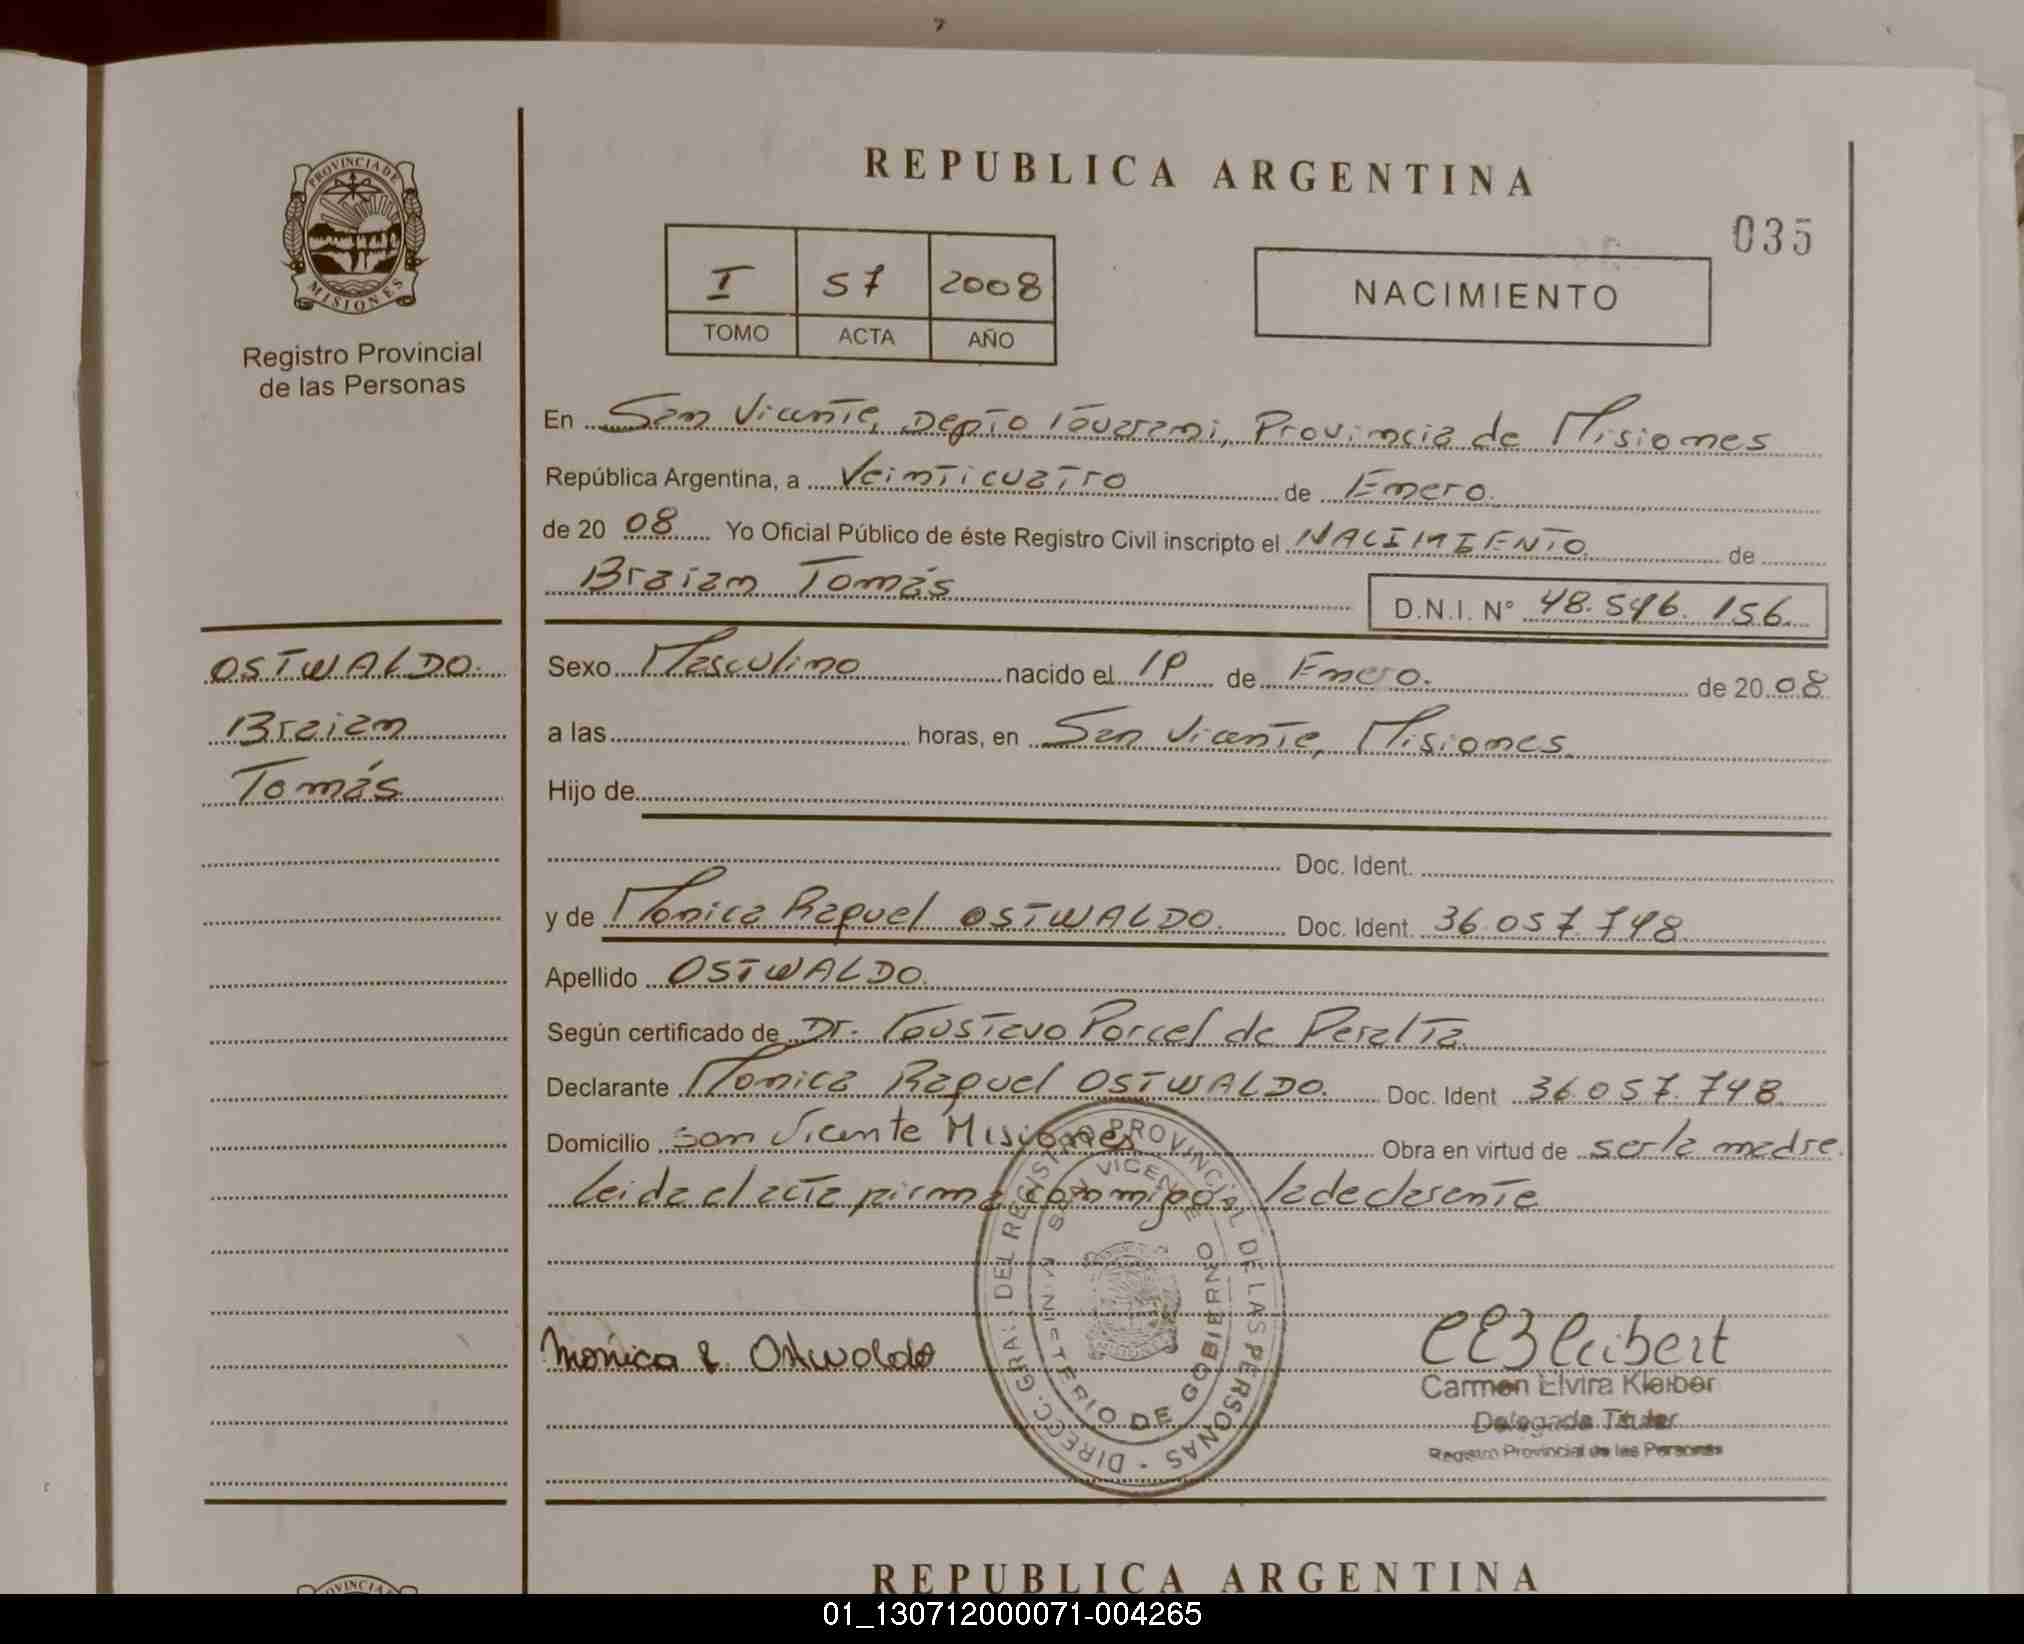 REPUBLICA ARGENTINA
035
PROVINCIA DE
MISIONES
Registro Provincial
de las Personas
I 57 2008
TOMO ACTA AÑO
NACIMIENTO
En San Vicente, Depto Guarani, Provincia de Misiones
República Argentina, a Veinticuatro de Enero.
de 20 08 Yo Oficial Público de éste Registro Civil inscripto el NACIMIENTO de
Braian Tomás
D.N.I. N° 48.546.156
OSTWALDO.
Braian
Tomás
Sexo Masculino nacido el de Enero. de 20 08
a las horas, en San Vicente, Misiones
Hijo de
Doc. Ident.
y de Monica Raquel OSTWALDO. Doc. Ident. 36.057.748
Apellido OSTWALDO.
Según certificado de Dr. Gustavo Porcel de Peralta.
Declarante Monica Raquel OSTWALDO. Doc. Ident 36.057.748.
Domicilio San Vicente Misiones Obra en virtud de ser la madre.
Leida el acta firma conmigo la declarante
DIRECC. GRAL. DEL REGISTRO PROVINCIAL DE LAS PERSONAS -
SAN VICENTE
MINISTERIO DE GOBIERNO
Monica R. Ostwaldo
Carmen Elvira Kleiber
Delegada Titular
Registro Provincial de las Personas
PROVINCIA
REPUBLICA ARGENTINA
01_130712000071-004265